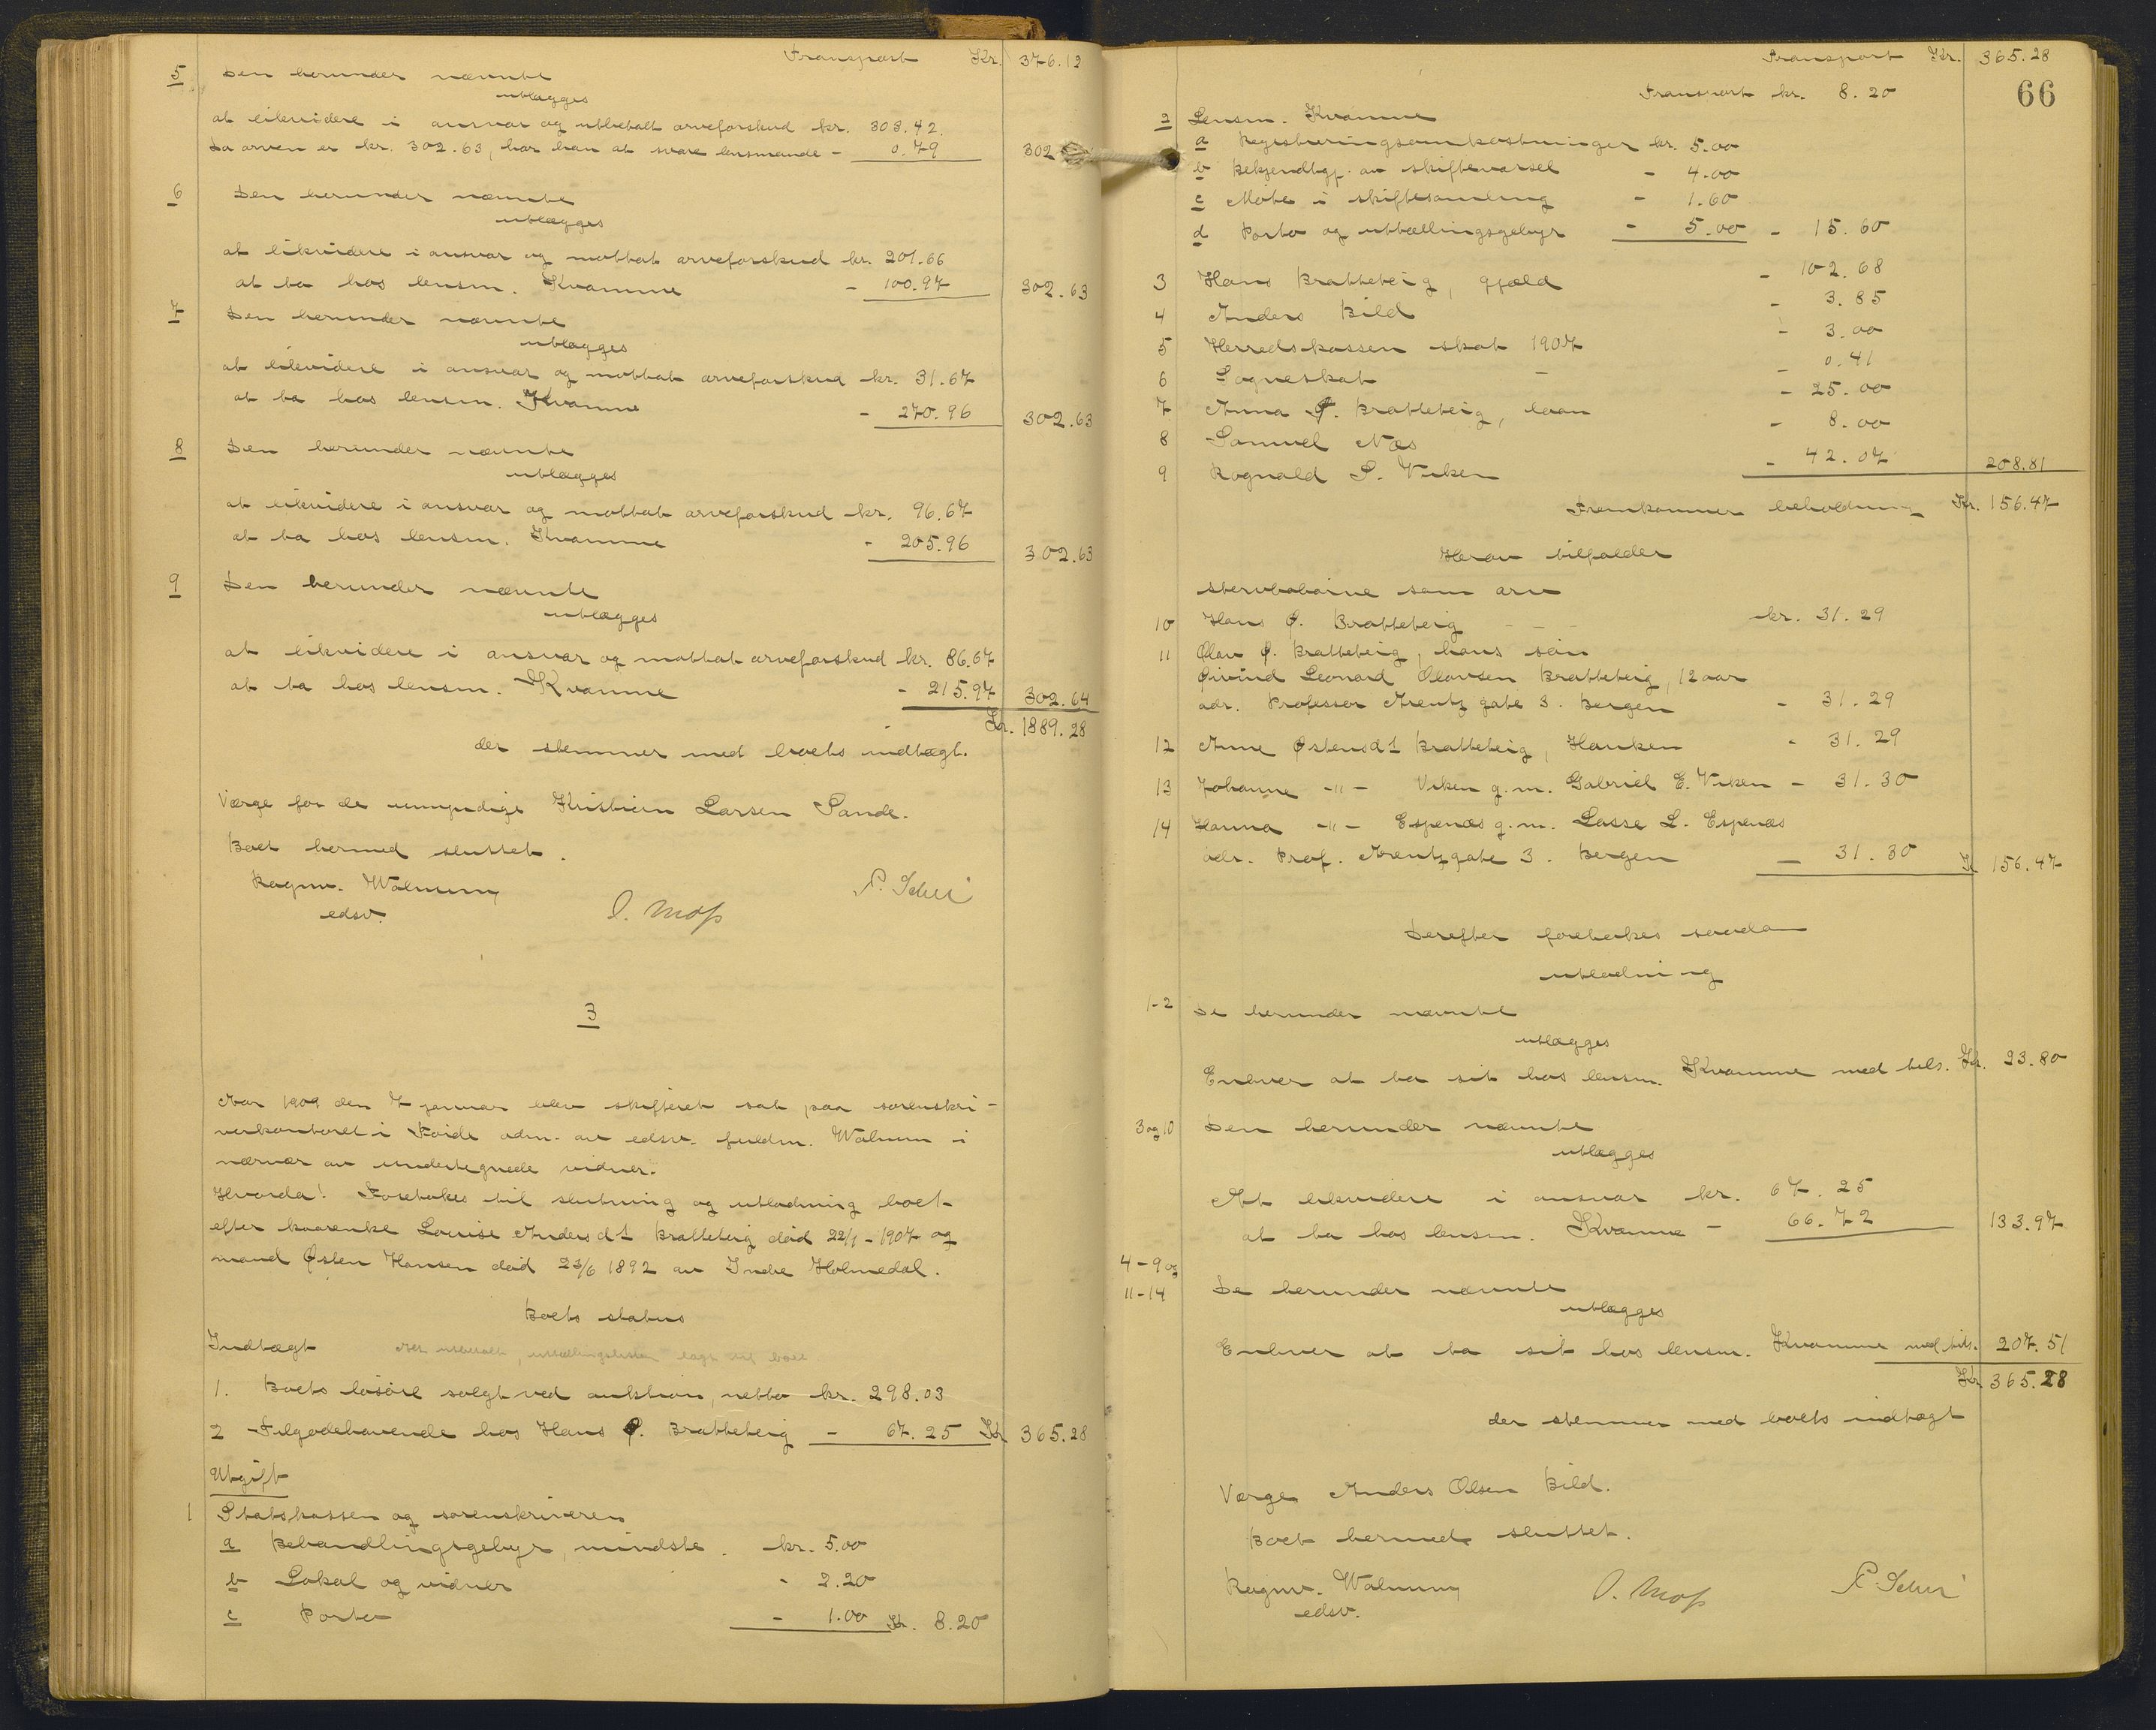 Transport Kr. 376.12
5 Den herunder nævnte
utlægges
at likvidere i ansvar og utbetalt arveforskud kr. 303.42.
Da arven er kr. 302.63, har han at svare lensmande - 0.79 302
6 Den herunder nævnte
utlægges
at likvidere i ansvar og mottat arveforskud kr. 201.66
at ta hos lensm. Kvamme - 100.97 302.63
7 Den herunder nævnte
utlægges
at likvidere i ansvar og mottat arveforskud kr. 31.67
at ta hos lensm. Kvamme - 270.96 302.63
8 Den herunder nævnte
utlægges
at likvidere i ansvar og mottat arveforskud kr. 96.67
at ta hos lensm. Kvamme - 205.96 302.63
9 Den herunder nævnte
utlægges
at likvidere i ansvar og mottat arveforskud kr. 86.67
at ta hos lensm. Kvamme - 215.97 302.64
Kr. 1889.28
der stemmer med boets indtægt.
Værge for de umyndige Kristian Larsen Sande.
Boet hermed sluttet.
Ragnv. Walnum
edsv.
O. Moss
3
Aar 1909 den 7 januar blev skifteret sat paa sorenskri-
verkontoret i Førde adm. av edsv. fuldm. Walnum i
nærvær av undertegnede vidner.
Hvorda! Foretokes til slutning og utlodning boet
efter kaarenke Louise Andersdt Bratteteig død 22/1-1907 og
mand Østen Hansen død 23/6 1892 av Indre Holmedal.
Boets status
Indtægt Alt utbetalt, uttællingslisten lagt til boet
1. Boets løsøre solgt ved auktion, netto kr. 298.03
2 Tilgodehavende hos Hans Ø. Bratteteig - 67.25 Kr 365.28
Utgift
1 Statskassen og sorenskriveren
a Behandlingsgebyr, mindste. kr. 5.00
b Lokal og vidner - 2.20
c Porto - 1.00 Kr. 8.20
Transport Kr. 365.28
66
Transport kr. 8.20
2 Lensm. Kvamme
a Registreringsomkostninger kr. 5.00
b Bekjendtgj. av skiftevarsel - 4.00
c Møte i skiftesamling - 1.60
d Porto og uttællingsgebyr - 5.00 - 15.60
3 Hans Bratteteig, gjæld - 102.68
4 Anders Bild - 3.85
5 Herredskassen skat 1907 - 3.00
6 Sogneskat - - 0.41
7 Anna Ø. Bratteteig, laan - 25.00
8 Samuel Næs - 8.00
9 Rognald S. Viken - 42.07 208.81
Fremkommer beholdning Kr. 156.47
Herav tilfalder
stervboboerne som arv
10 Hans Ø. Bratteteig - - - kr. 31.29
11 Olav Ø. Bratteteig, hans søn
Øivind Leonard Olavsen Bratteteig, 12 aar
adr. Professor Arentz gate 3. Bergen - 31.29
12 Anne Østensdt Bratteteig, Hauken - 31.29
13 Johanne -"- Viken g.m. Gabriel E. Viken - 31.30
14 Hanna -"- Espenæs g.m. Lasse L. Espenæs
adr. Prof. Arentzgate 3. Bergen - 31.30 K 156.47
Derefter foretokes saadan
utlodning
1-2 De herunder nævnte
utlægges
Enhver at ta sit hos lensm. Kvamme med tils. Kr. 23.80
3 og 10 Den herunder nævnte
utlægges
At likvidere i ansvar kr. 67.25
at ta hos lensm. Kvamme - 66.72 133.97
4-9 og
11-14 De herunder nævnte
utlægges
Enhver at ta sit hos lensm. Kvamme med tils. 207.51
Kr. 365.28
der stemmer med boets indtægt
Værge Anders Olsen Bild.
Boet hermed sluttet.
Ragnv. Walnum
edsv.
O. Moss